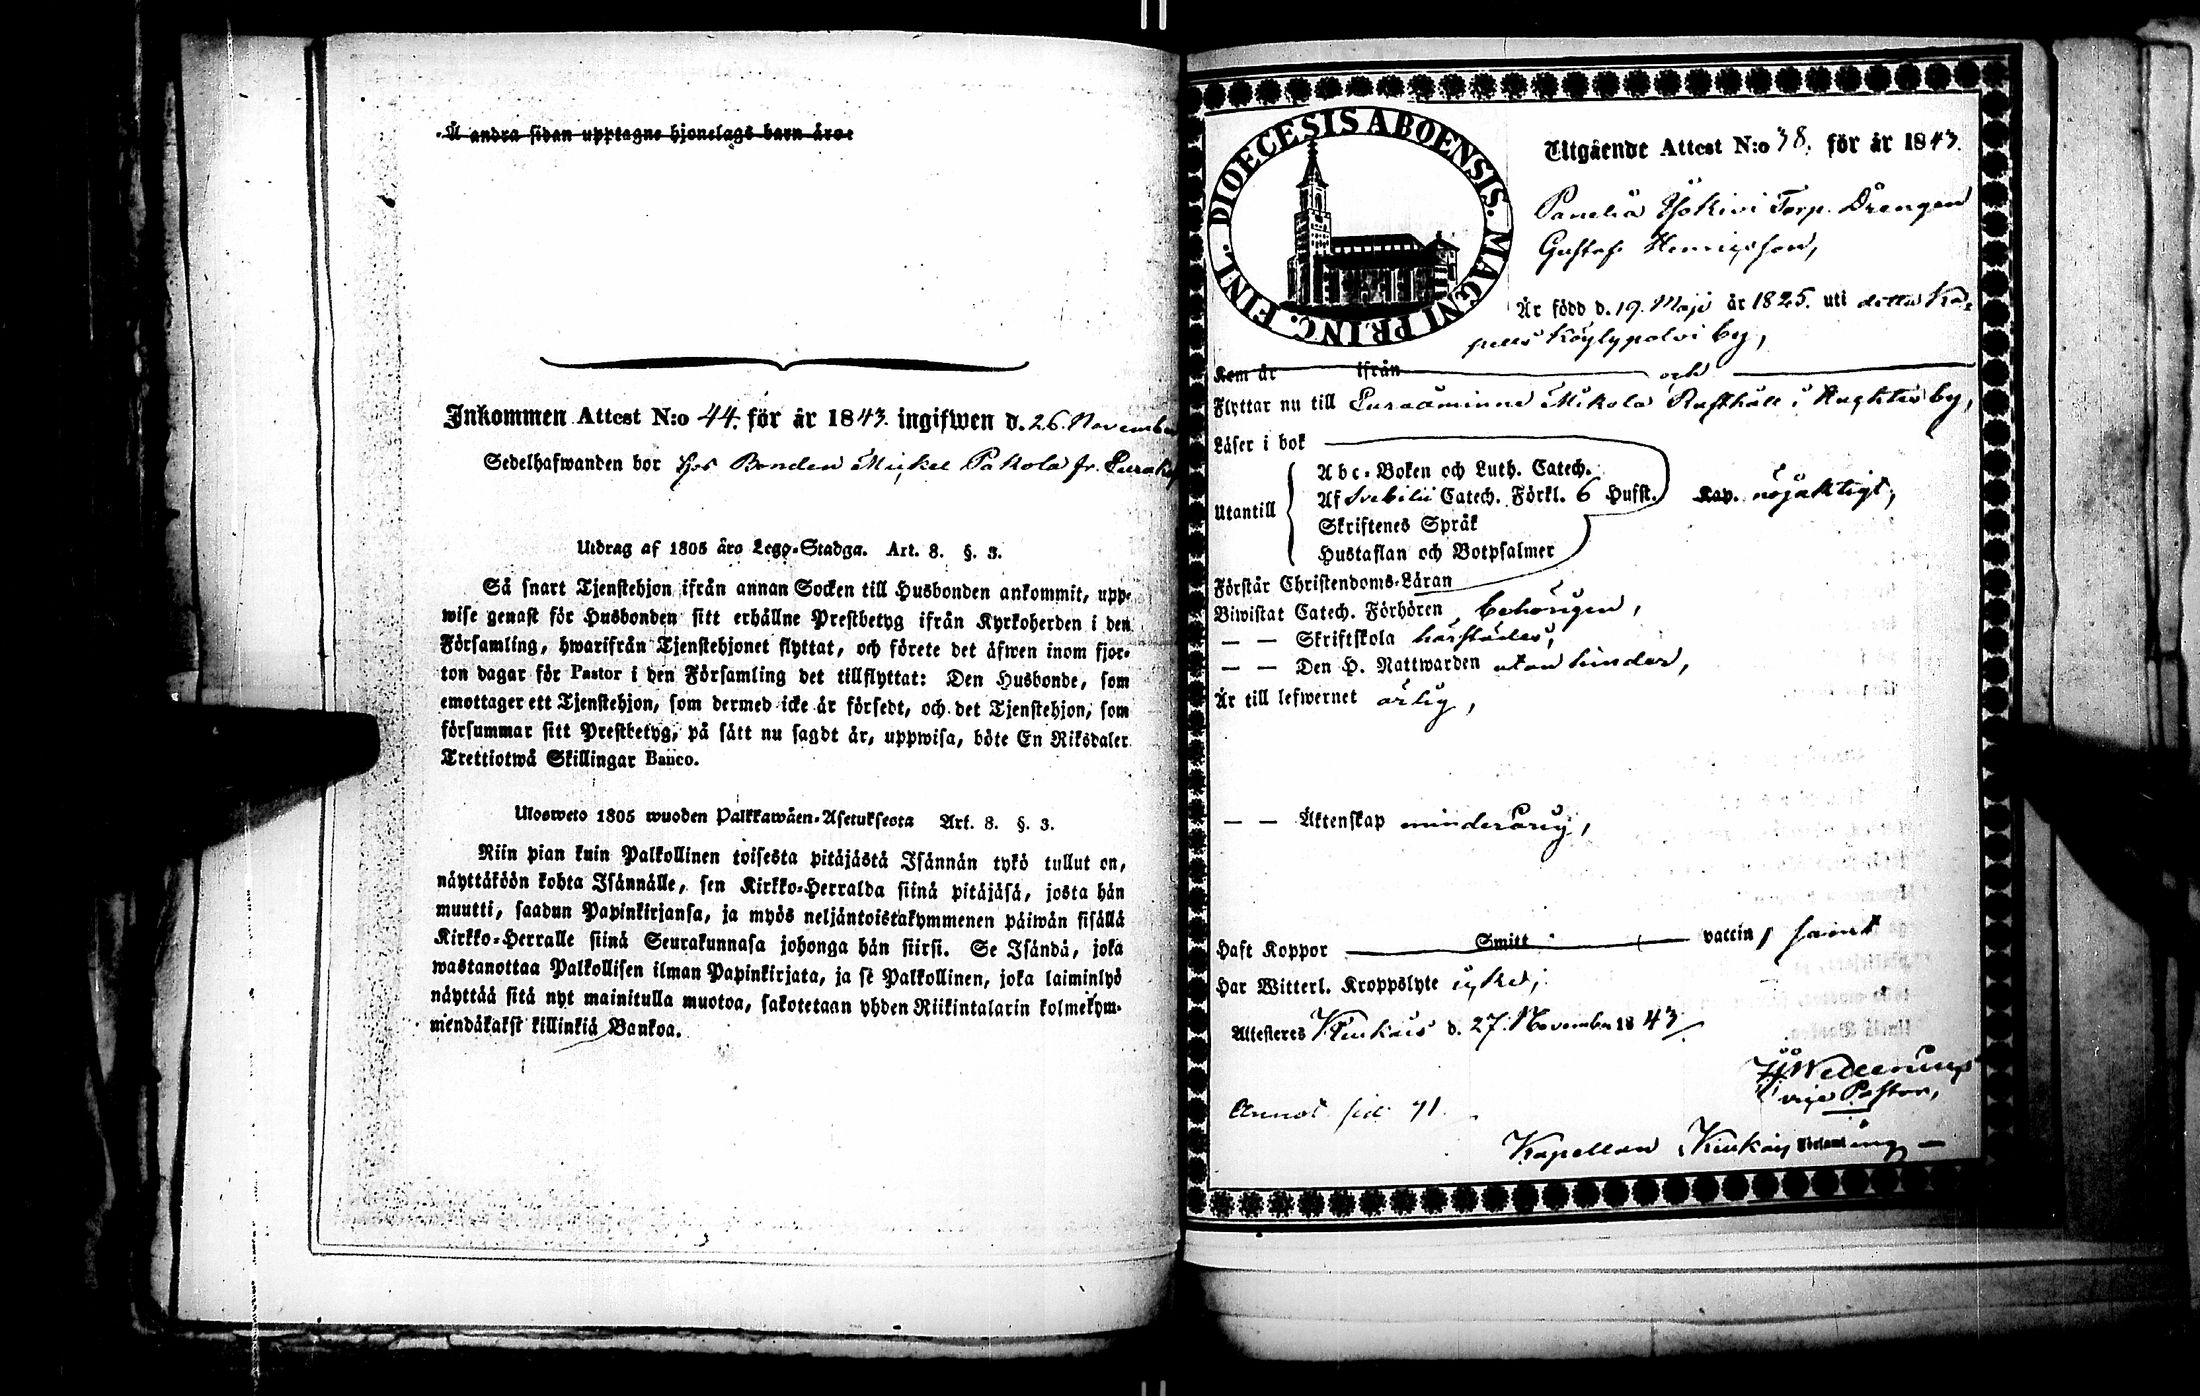 Å andra sidan upptagne hjonelags barn äro:
Inkommen Attest N:o 44. för år 1843. ingifwen d. 26. November
Sedelhafwanden bor hos Bonden Michel Pakola fr.
Utdrag af 1805 års Lego-Stadga. Art. 8. §. 3.
Så snart Tjenstehjon ifrån annan Socken till Husbonden ankommit, upp-
wise genast för Husbonden sitt erhållne Prestbetyg ifrån Kyrkoherden i den
Församling, hwarifrån Tjenstehjonet flyttat, och förete det äfwen inom fjor-
ton dagar för Pastor i den Församling det tillflyttat: Den Husbonde, som
emottager ett Tjenstehjon, som dermed icke är försedt, och det Tjenstehjon, som
försummar sitt Prestbetyg, på sätt nu sagdt är, uppwisa, böte En Riksdaler
Trettiotwå Skillingar Banco.
Ulosweto 1805 wuoden Palkkawäen-Asetuksesta Art. 8. §. 3.
Niin pian kuin Palkollinen toisesta pitäjästä Isännän tykö tullut on,
näyttäköön kohta Isännälle, sen Kirkko-Herralda siinä pitäjäsä, josta hän
muutti, saadun Papinkirjansa, ja myös neljäntoistakymmenen päiwän sisällä
Kirkko-Herralle siinä Seurakunnasa johonga hän siirsi. Se Isändä, joka
wastanottaa Palkollisen ilman Papinkirjata, ja se Palkollinen, joka laiminlyö
näyttää sitä nyt mainitulla muotoa, sakotetaan yhden Riikintalarin kolmekym-
mendäkaksi killinkiä Bankoa.
DIOECESIS ABOENSIS. MAGNI PRINC. FINL.
Utgående Attest N:o 38. för år 1843.
Panelia Torp. Drengen
Gustaf Henricsson,
Är född d. 19. Maji år 1825. uti detta Ka-
pells Köylypolvi by,
Kom år ifrån och
Flyttar nu till Euraåminne Mikola Rusthåll i by,
Läser i bok
Utantill
Abc-Boken och Luth. Catech.
Af Svebilii Catech. Förkl. 6 Hufst. Kap. nöjaktigt,
Skriftenes Språk
Hustaflan och Botpsalmer
Förstår Christendoms-Läran
Biwistat Catech. Förhören behörigen,
— — Skriftskola härstädes,
— — Den H. Nattwarden utan hinder,
Är till lefwernet ärlig,
— — Äktenskap minderårig,
Haft Koppor Smitt vaccin, samt
Har Witterl. Kroppslyte icke;
Attesteras Kiukais d. 27. November 1843.
vice Pastor,
Annot. sid. 71.
Kapellan i Kiukais Församling —